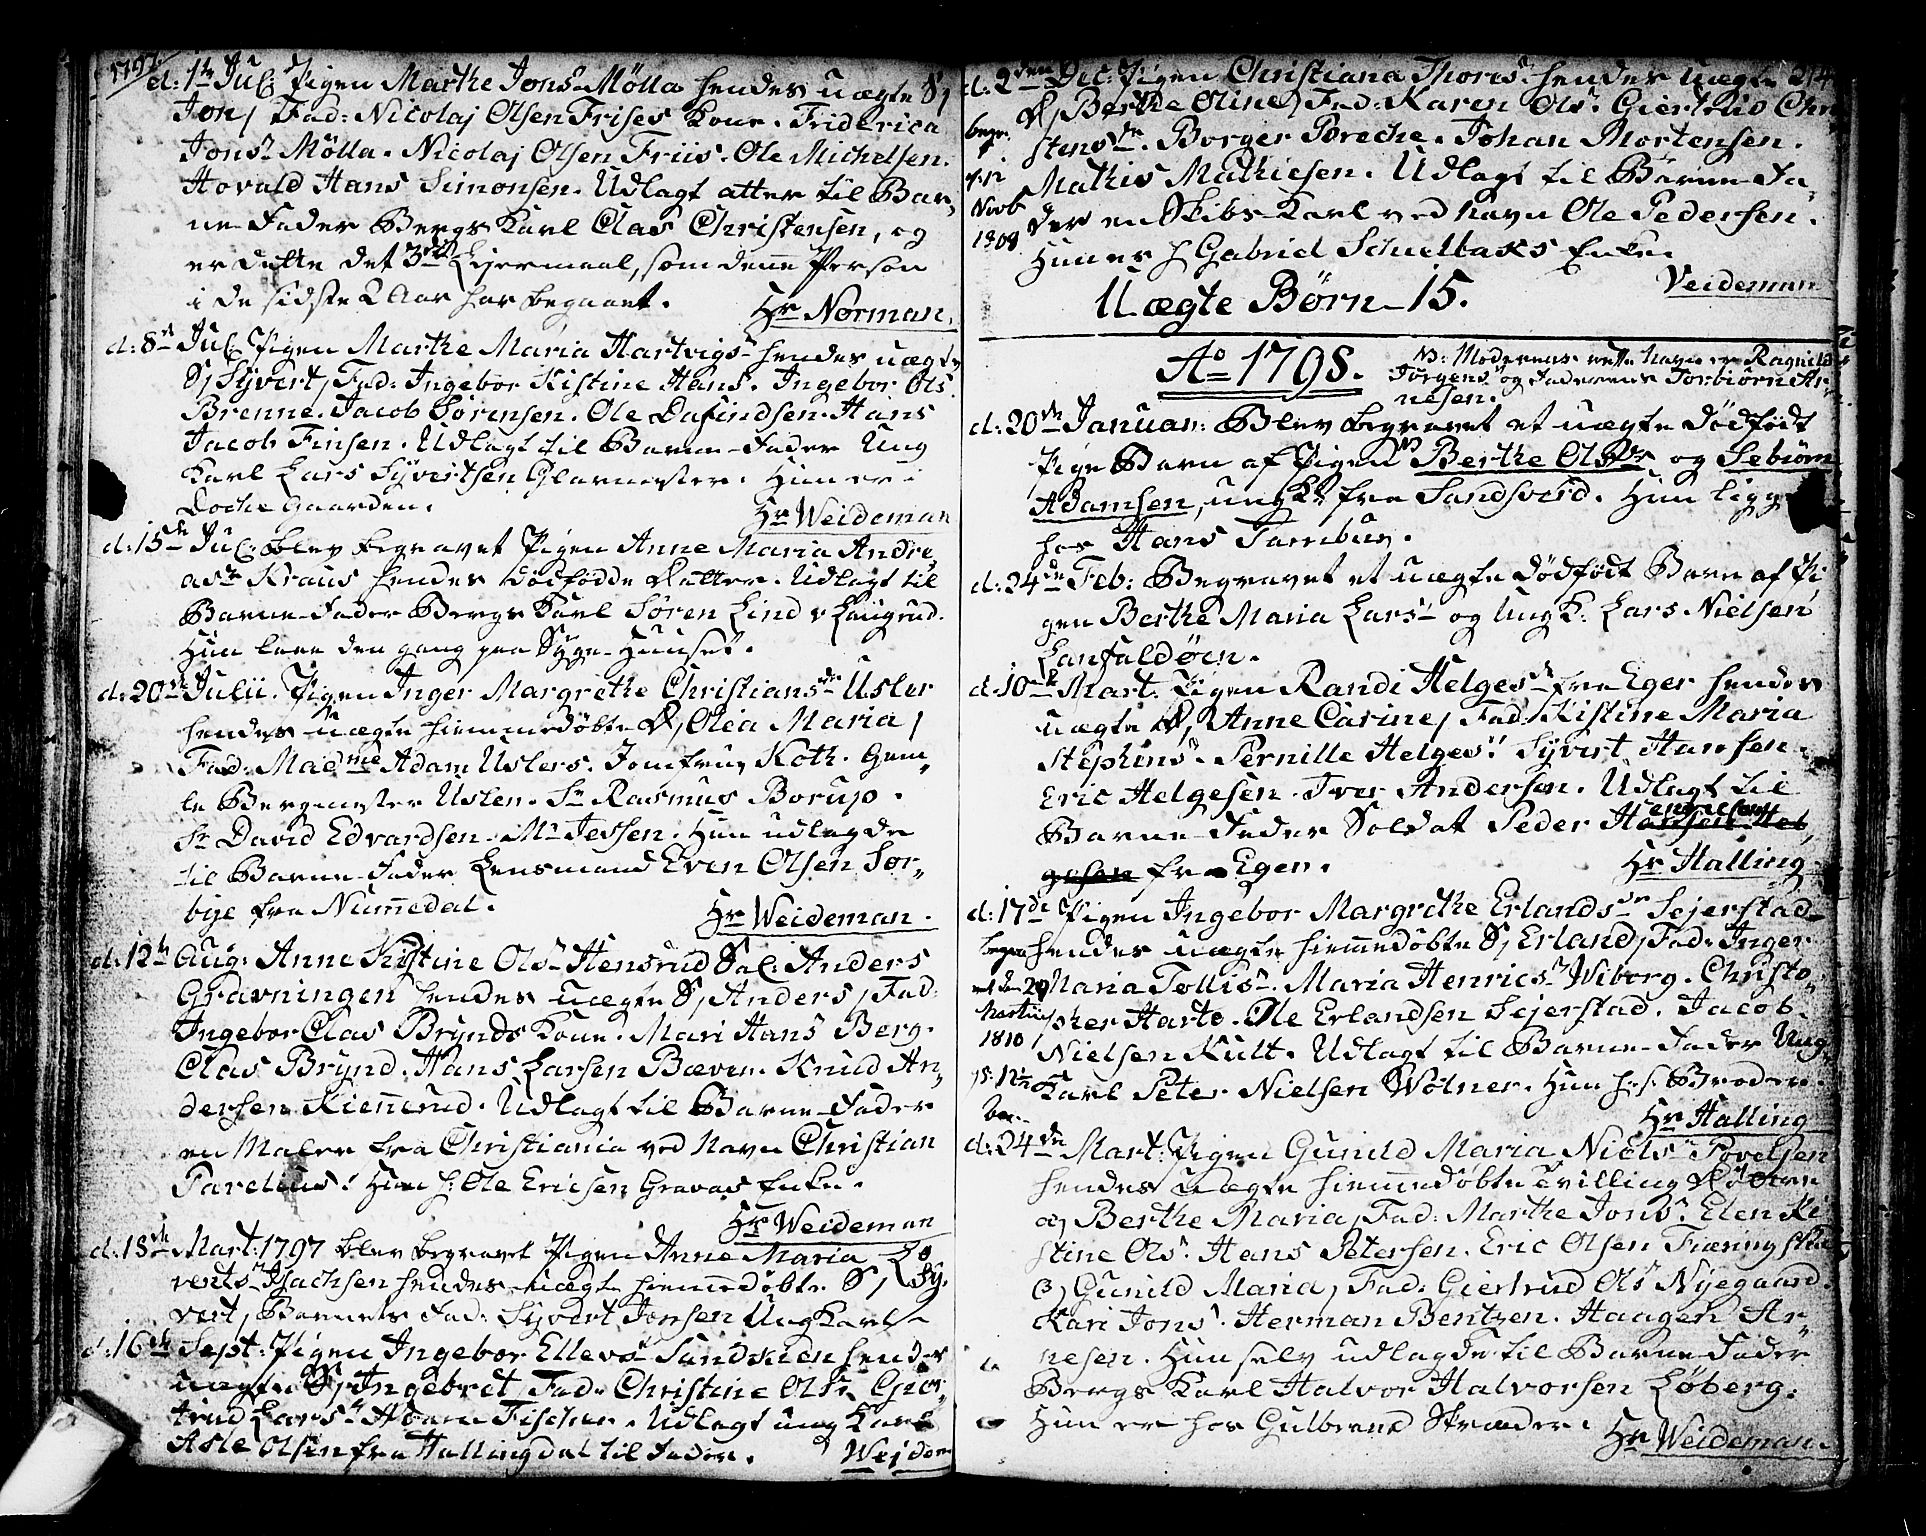 1797.
d: 1te Jul: Pigen Marthe Jons Mölla hendes uægte S,
Jon, Fad: Nicolaj Olsen Frises Kone. Friderica
Jonsr Mölla. Nicolaj Olsen Friis. Ole Michelsen.
Hovald Hans Simonsen. Udlagt atter til Bar,
ne Fader Bergs Karl Clas Christensen, og
er dette det 3die Leiermaal, som denne Person
i de sidste 2 Aar har begaaet.
Hr Norman.
d: 8de Jul: Pigen Marthe Maria Hartvigs hendes uægte
S, Syvert, Fad: Ingebor Kistine Hans. Ingebor Ols.
Brenne. Jacob Sörensen. Ole Dafindsen. Hans
Jacob Finsen. Udlagt til Barne-Fader Ung
Karl Lars Syvertsen Glarmester. Hun er i
Docke gaarden.
Hr Weideman
d: 15de Jul: blev begravet Pigen Anne Maria Andre
asdr Kraus hendes dödfödde Datter. Udlagt til
Barne-Fader Bergs Karl Sören Lind v Laugrud.
Hun laae den gang paa Syge-Huuset.
d: 20de Julii. Pigen Inger Margrethe Christiansdr Usler
hendes uægte hiemmedöbte D, Olea Maria,
Fad: Madme Adam Uslers. Jomfru Koth. Gam,
le Bergmester Usler. Sr Rasmus Borup.
Sr David Edvardsen. Mr Jessen. Hun udlagde
til Barne-Fader Lensmand Even Olsen Sør,
bye fra Nummedal.
Hr Weideman.
d: 12te Aug: Anne Kistine Olsdr Hensrud Sal: Anders
Gravningen hendes uægte S, Anders, Fad:
Ingebor Clas Brynds Kone. Mari Hans Berg.
Clas Brynd. Hans Larsen Bæven. Knud An,
dersen Kiennerud. Udlagt til Barne-Fader
en Maler fra Christiania ved Navn Christian
Parelius! Hun s: Ole Ericsen Gravas Enke.
Hr Weideman
d: 18de Mart: 1797 blev begravet Pigen Anne Maria
ventsr Isachsen hendes uægte hiemmedöbte S, Sy,
vert, Barnets Fad: Syvert Jonsen Ung Karl
d: 16de Sept: Pigen Ingebor Ellevs Sandsuien hendes
uægte S, Ingebret, Fad: Christine Olsr Gier,
trud Larsr Adam Fischer. Udlagt ung Karl
Asle Olsen fra Hallingdal til Fader.
Wejdem
d: 2den Dec: Pigen Christiana Thores hendes uægte
D, Berthe Oline, Fad: Karen Olsr Giertrud Chri
stensdr. Borger Breche. Johan Mortensen.
Mathis Mathiesen. Udlagt til Barne-Fa,
der en Skibs Karl ved Navn Ole Pedersen.
Hun er s Gabriel Schieltaks Enke.
Veideman
Novb
1808
Uægte Børn - 15.
Ao 1798.
NB: Moderens rette Navn er Ragnild
Jörgens og Faderens Torbiörn Ar
nesen.
d: 20de Januar: Blev begravet et uægte dödfödt
Pige Barn af Pigen NB Berthe Olsdr og Sebiörn
Adamsen, ung K: fra Sandsverd. Hun ligger
hos Hans Tambur.
d: 24de Feb: Begravet et uægte dödfödt Barn af Pi
gen Berthe Maria Lars og Ung K: Lars Nielsen
Lanfaldöen.
d: 10de Mart: Pigen Randi Helges fra Eger hendes
uægte D, Anne Carine, Fad: Kistine Maria
Stephens. Pernille Helges! Syvert Hansen.
Eric Helgesen. Iver Andersen. Udlagt til
Barne-Fader Soldat Peder Hansen Hel,
gesen fra Eger.
Hr Halling
d: 17de Pigen Ingebor Margrethe Erlandsdr Sejerstad
hendes uægte hiemmedöbte S, Erland, Fad: Inger
Maria Tollisr. Maria Henricsr Wiborg. Christo,
pher Harto. Ole Erlandsen Sejerstad. Jacob
Nielsen Kult. Udlagt til Barne-Fader Ung
Karl Peter Nielsen Wölner. Hun hos Broderen.
Hr Halling
1810
d: 24de Mart: Pigen Gunild Maria Niels Povelsen
hendes uægte hiemmedöbte Tvilling Döttre
a, Berthe Maria, Fad: Marthe Jons. Elen Ki
stine Ols. Hans Petersen. Eric Olsen
b, Gunild Maria, Fad: Giertrud Ols Nyegaard.
Kari Jons. Herman Bentzen. Haagen Ar,
nesen. Hun selv udlagde til Barne-Fader
Bergs Karl Halvor Halvorsen Løberg.
Hun er hos Gulbrand Skræder.
Hr Weideman.